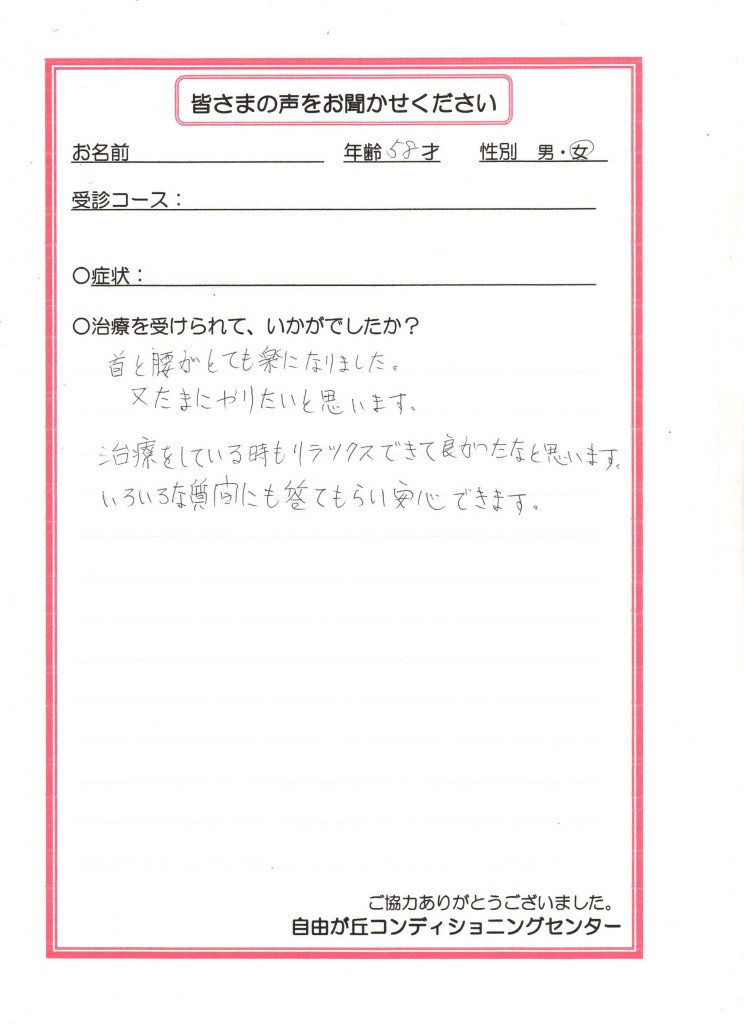 皆さまの声をお聞かせください
お名前 年齢 58 才 性別 男・女
受診コース：
○症状：
○治療を受けられて、いかがでしたか？
首と腰がとても楽になりました。
又たまにやりたいと思います。
治療をしている時もリラックスできて良かったなと思います。
いろいろな質問にも答てもらい安心できます。
ご協力ありがとうございました。
自由が丘コンディショニングセンター